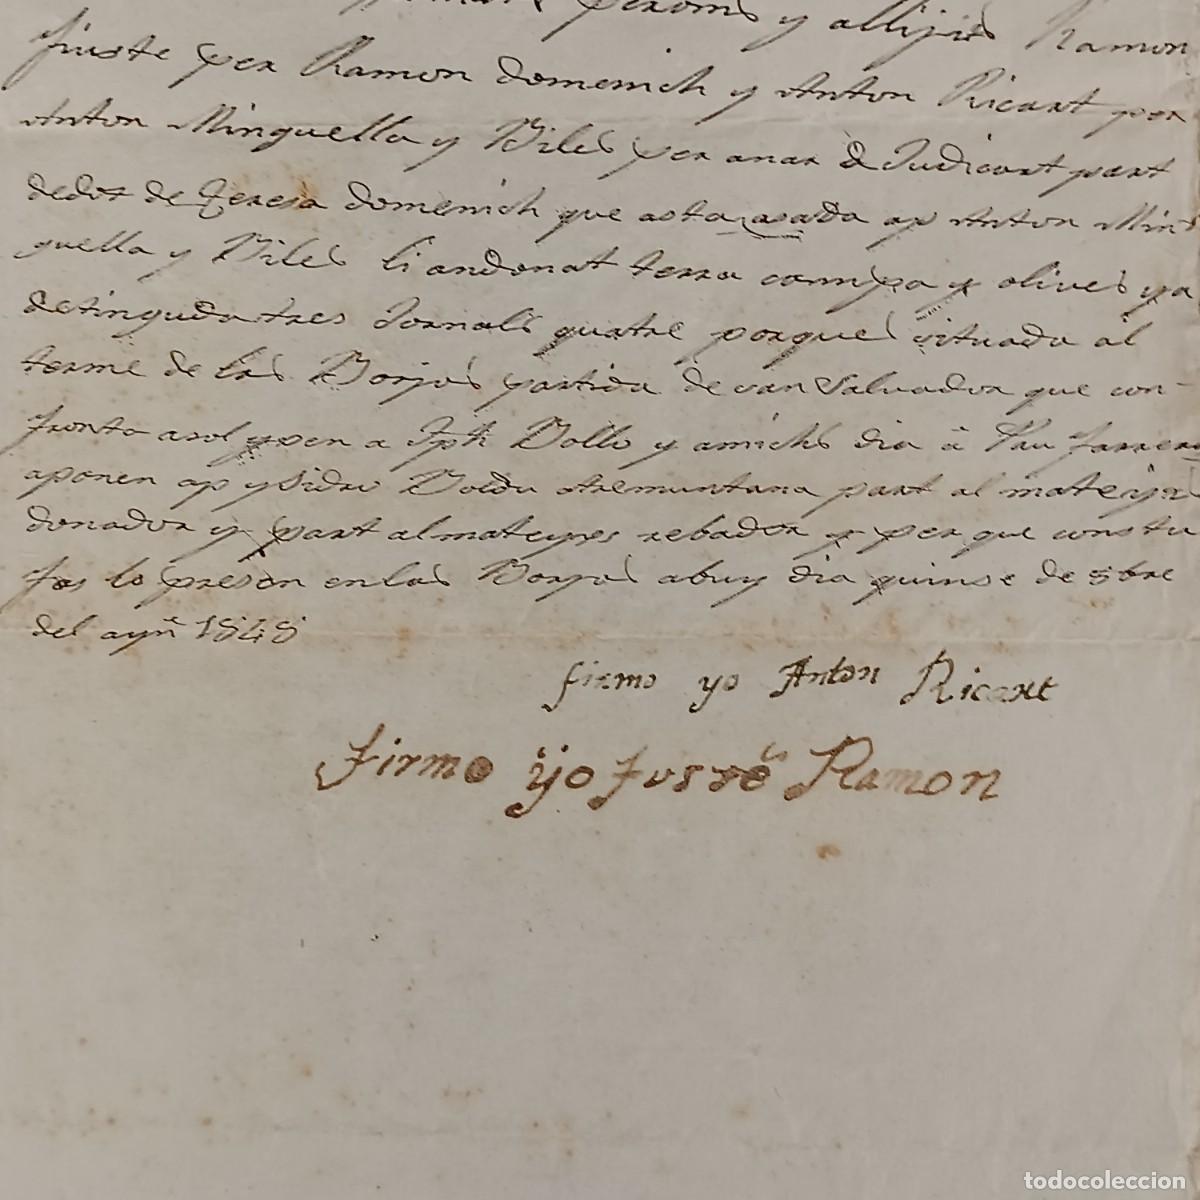 y allijire Ramon
fiuste per Ramon Domenich y Anton Ricart per
Anton Minguella y Viles per anar á Judicart part
dedot de Teresa Domenich que asta casada ap Anton Min
guella y Viles li an donat terra campa y olives ya
detinguda tres Jornals quatre porques situada al
terme de las Borjas partida de San Salvador que con-
fronta a sol yxen a Jph y amichs dia á farrero
a ponen ap ysidro tremuntana part al mateyx
donador y part al mateyxs rebador y per que constu
fas lo presen en las Borjas abuy dia quinse de 9bre
del ayñ 1848
firmo yo Anton Ricart
firmo yo fusté Ramon
todocoleccion